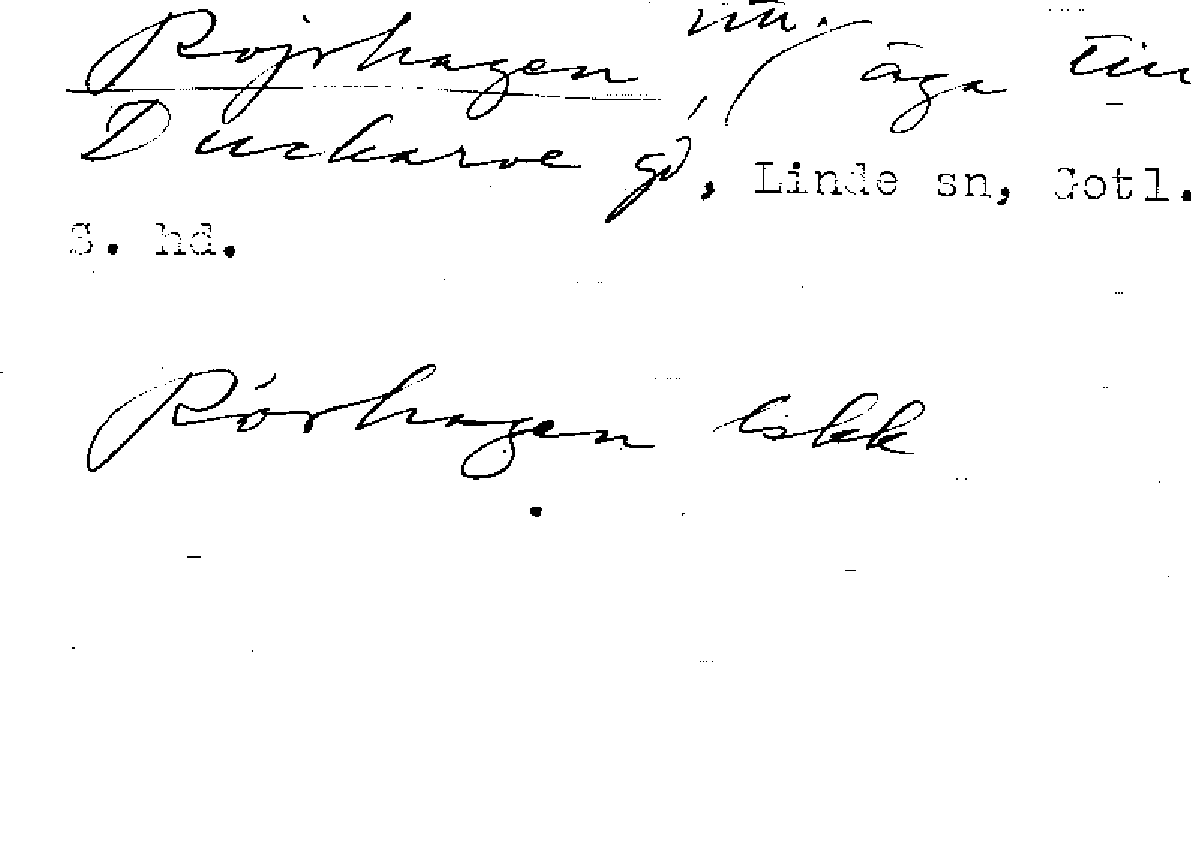 Rojrhagen, äga till
Duckarve gd, Linde sn, Gotl.
S. hd.
Rörhagen lskk